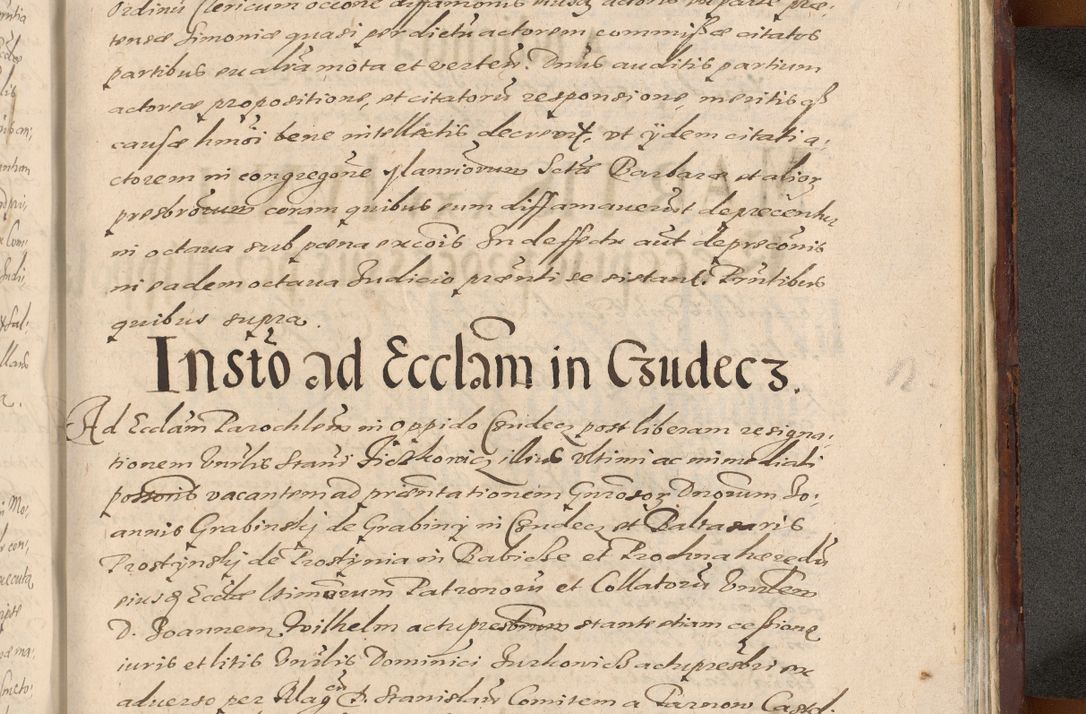 Ordinū Clericum occone diffamonis
tensæ simoniæ quasi per dictū actorem commissæ citatos
partibus ex alia mota et verten. Dnus auditis partium
actoreæ propositione, et citatorū responsione, meritis qȝ
causæ hmōi bene intellectis decrevit, vt ijdem citati a,
ctorem in congregōne Sctæ Barbaræ et alior
presbrorum coram quibus eum diffamauerūt deprecentur
in octaua sub pœna excōis In deffectu aūt depræconis
in eadem octaua Iudicio prænti se sistant. Pñtibus
quibus supra.
Instō ad Ecclam in Czudecz.
Ad Ecclam Parochlem in oppido Czudecz post liberam resigna,
tionem Venlis Stani illius vltimi ac immediati
possoris vacantem ad præntationem Gnrosor Dnorum Jo,
annis Grabinskj de Grabinij in Czudecz et Baltasaris
Prostynskj de Prostynia in Babicze et Prochna hæredū
eiusȝ Ecclæ ltimorum Patronorū et Collatorū Venlem
D. Joannem Wilhelm actu presbrum stante etiam cessione
iuris et litis Venlis Dominici Jurkowicz actu presbri ex
aduerso per Magcū D. Stanislaū Comitem a Tarnow Castel.